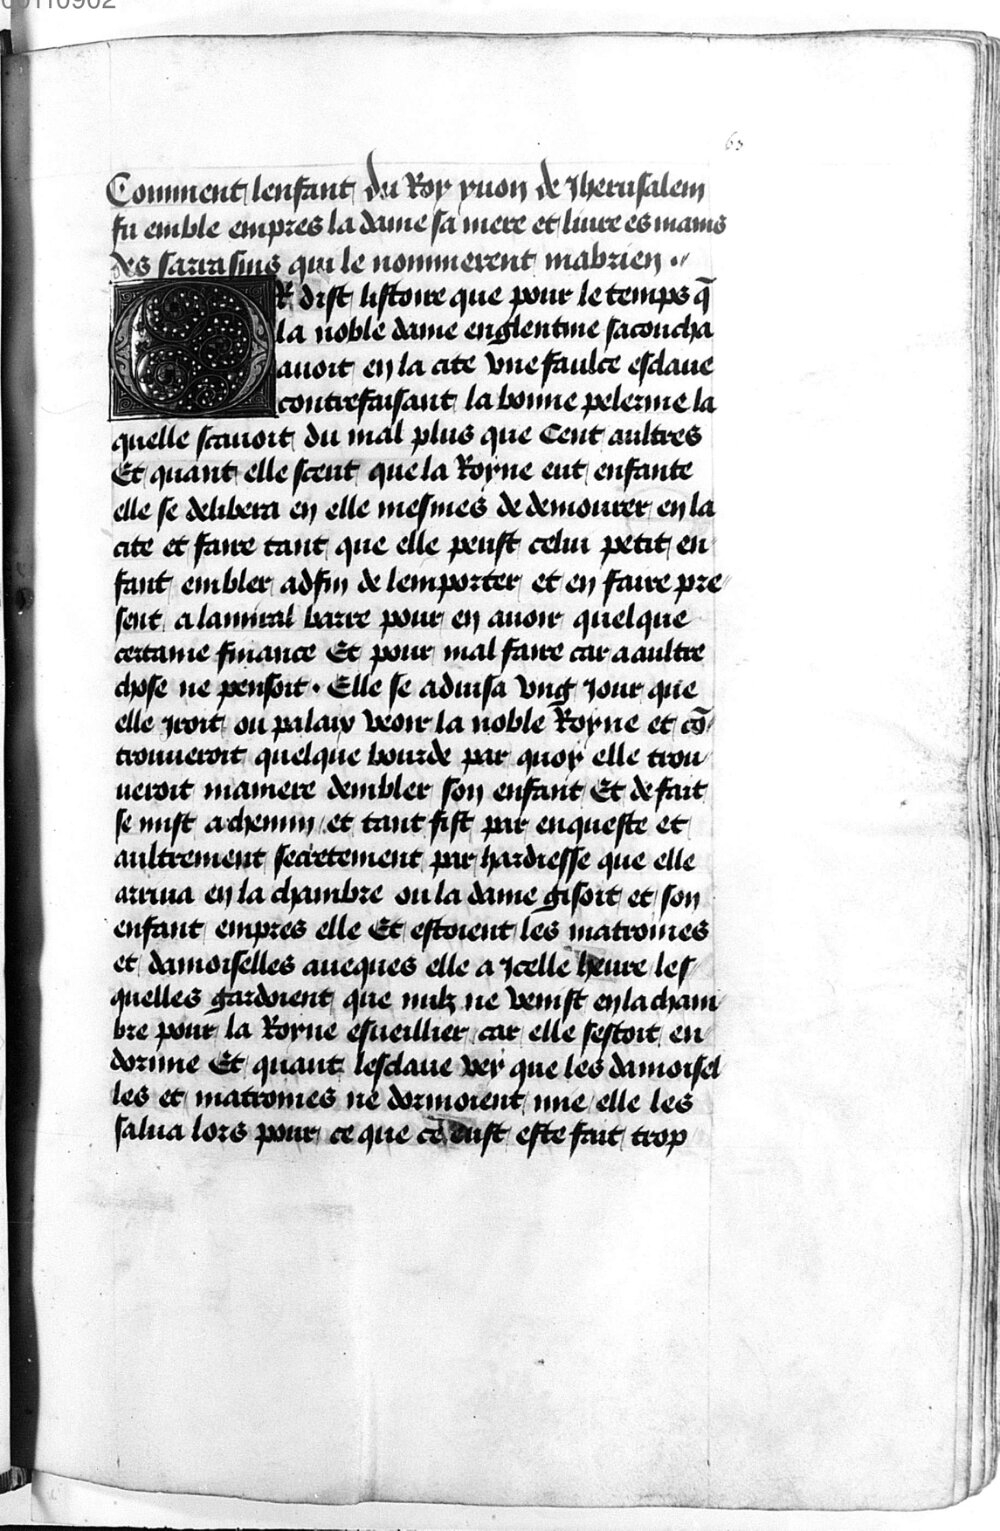 00110902
63
Comment lenfant du Roy yuon de Jherusalem
fu emble empres la dame sa mere et liure es mains
des sarrasins qui le nommerent mabrien
OR dist listoire que pour le temps q̄
la noble dame englentine sacoucha
auoit en la cite vne faulce esclaue
contrefaisant la bonne pelerine la
quelle scauoit du mal plus que Cent aultres
Et quant elle sceut que la Royne eut enfante
elle se delibera en elle mesmes de demourer en la
cite et faire tant que elle peust celui petit en
fant embler adfin de lemporter et en faire pre
sent a lamiral barre pour en auoir quelque
certaine finance Et pour mal faire car a aultre
chose ne pensoit . Elle se aduisa vng Jour que
elle Jroit ou palaix veoir la noble Royne et cō
trouueroit quelque bourde par quoy elle trou
ueroit maniere dembler son enfant Et de fait
se mist a chemin et tant fist par enqueste et
aultrement secretement par hardiesse que elle
arriua en la chambre ou la dame gisoit et son
enfant empres elle Et estoient les matrones
et damoiselles aueques elle a Jcelle heure les
quelles gardoient que nulz ne venist en la cham
bre pour la Royne esueillier car elle sestoit en
dormie Et quant lesclaue vey que les damoisel
les et matrones ne dormoient mie elle les
salua lors pour ce que ce eust este fait trop